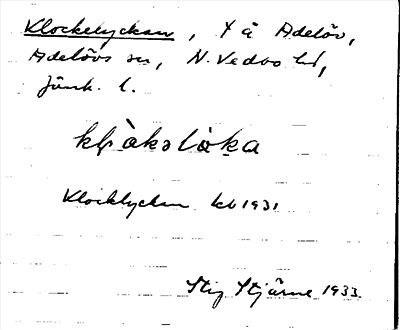 Klockelyckan, t å Adelöv,
Adelövs sn, N. Vedbo hd,
Jönk. l.
Klocklyckan kb 1931
Stig Stjärne 1933.